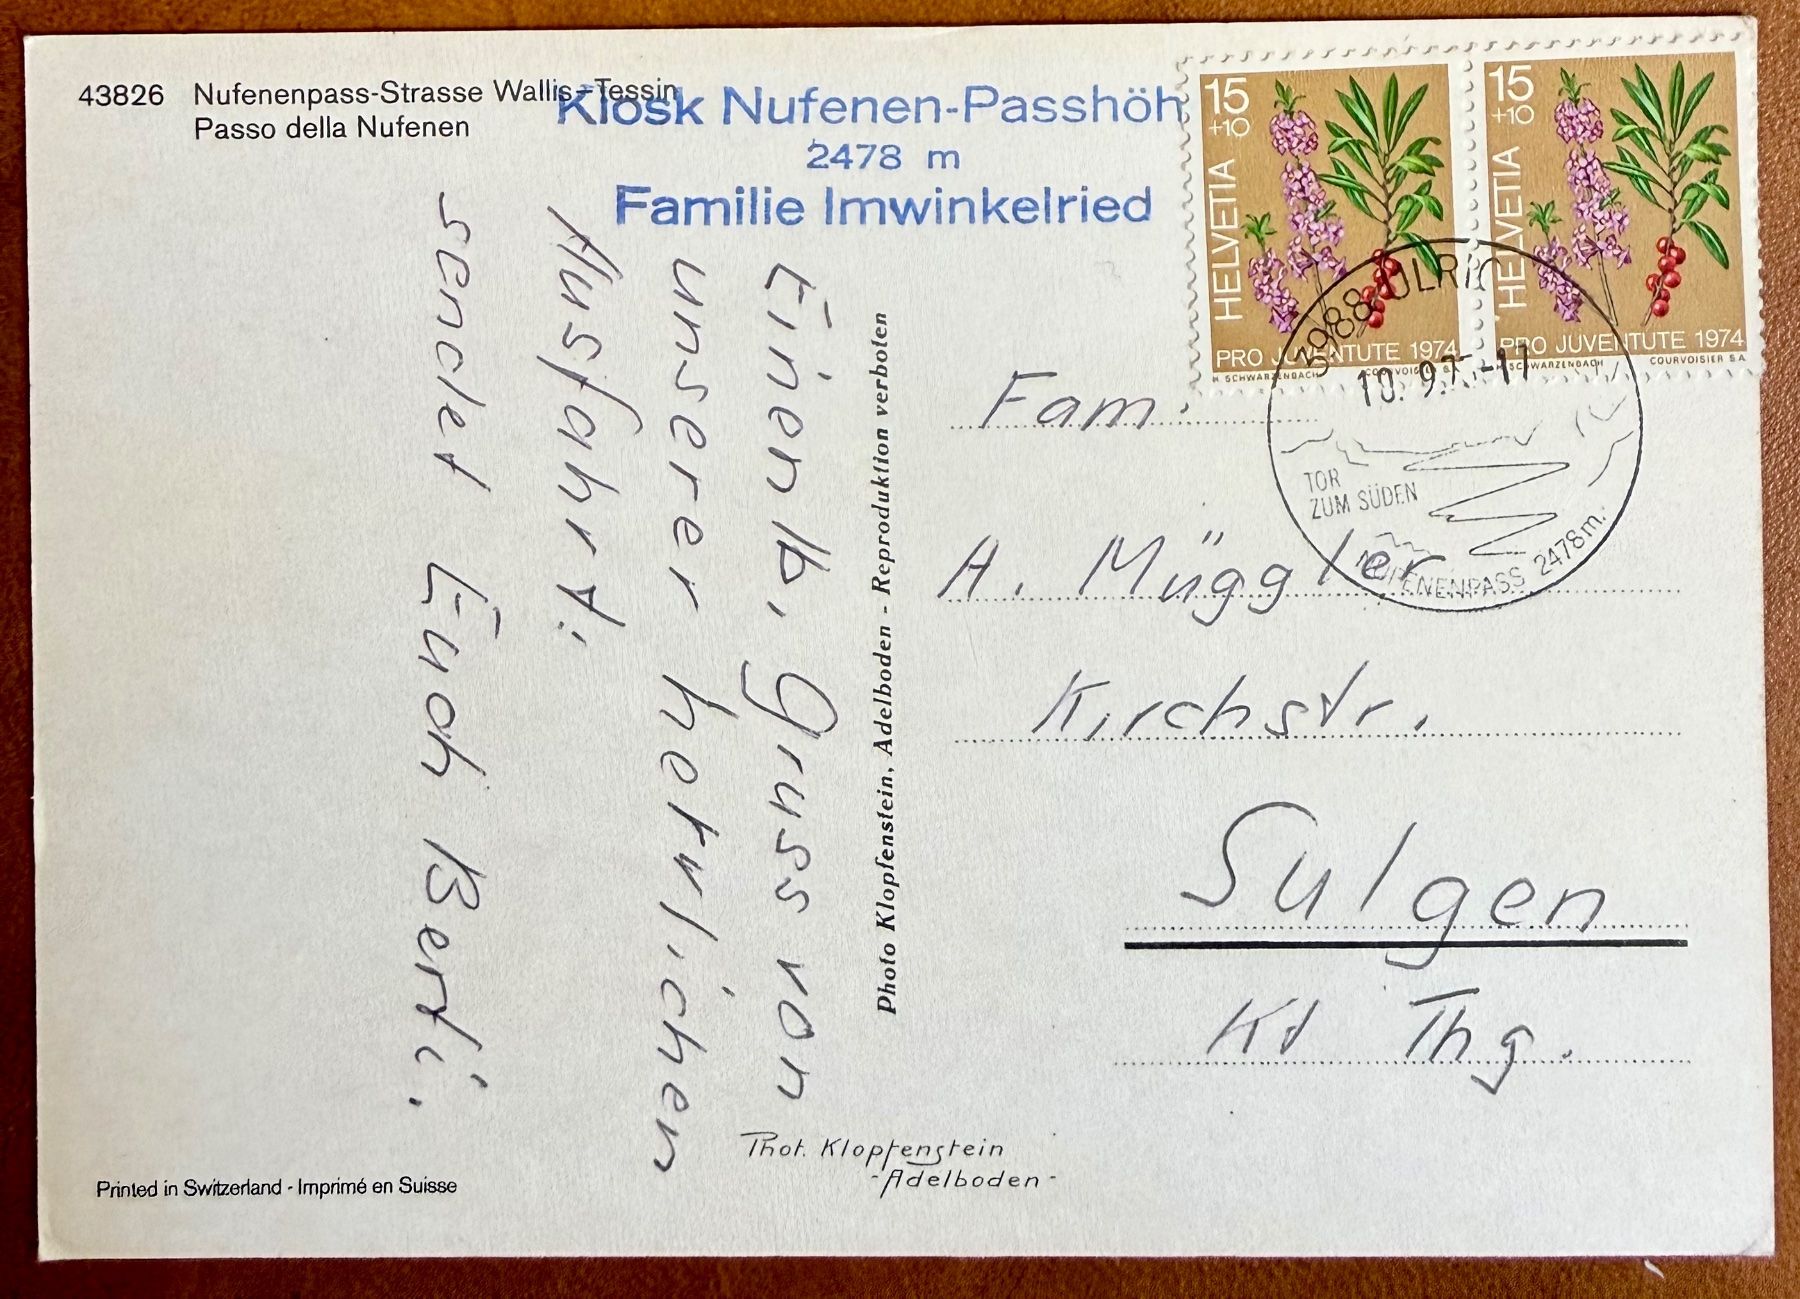 43826 Nufenenpass-Strasse Wallis-Tessin
Passo della Nufenen
Kiosk Nufenen-Passhöh
2478 m
Familie Imwinkelried
15
+10
HELVETIA
PRO JUVENTUTE 1974
H. SCHWARZENBACH COURVOISIER S.A.
15
+10
HELVETIA
PRO JUVENTUTE 1974
H. SCHWARZENBACH COURVOISIER S.A.
3988 ULRIC
10. 9.7 -17
TOR
ZUM SÜDEN
NUFENENPASS 2478m.
Einen lb. Gruss von
unserer herrlichen
Ausfahrt:
sendet Euch Berti.
Photo Klopfenstein, Adelboden - Reproduktion verboten
Fam.
A. Müggler
Kirchstr.
Sulgen
Kt Thg.
Phot. Klopfenstein
-Adelboden-
Printed in Switzerland - Imprimé en Suisse